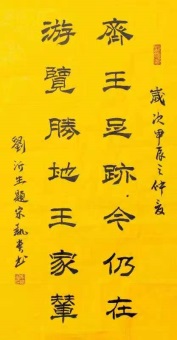 歲次甲辰之仲夏
齊王足跡今仍在
游覽勝地王家輦
劉沂生題宋